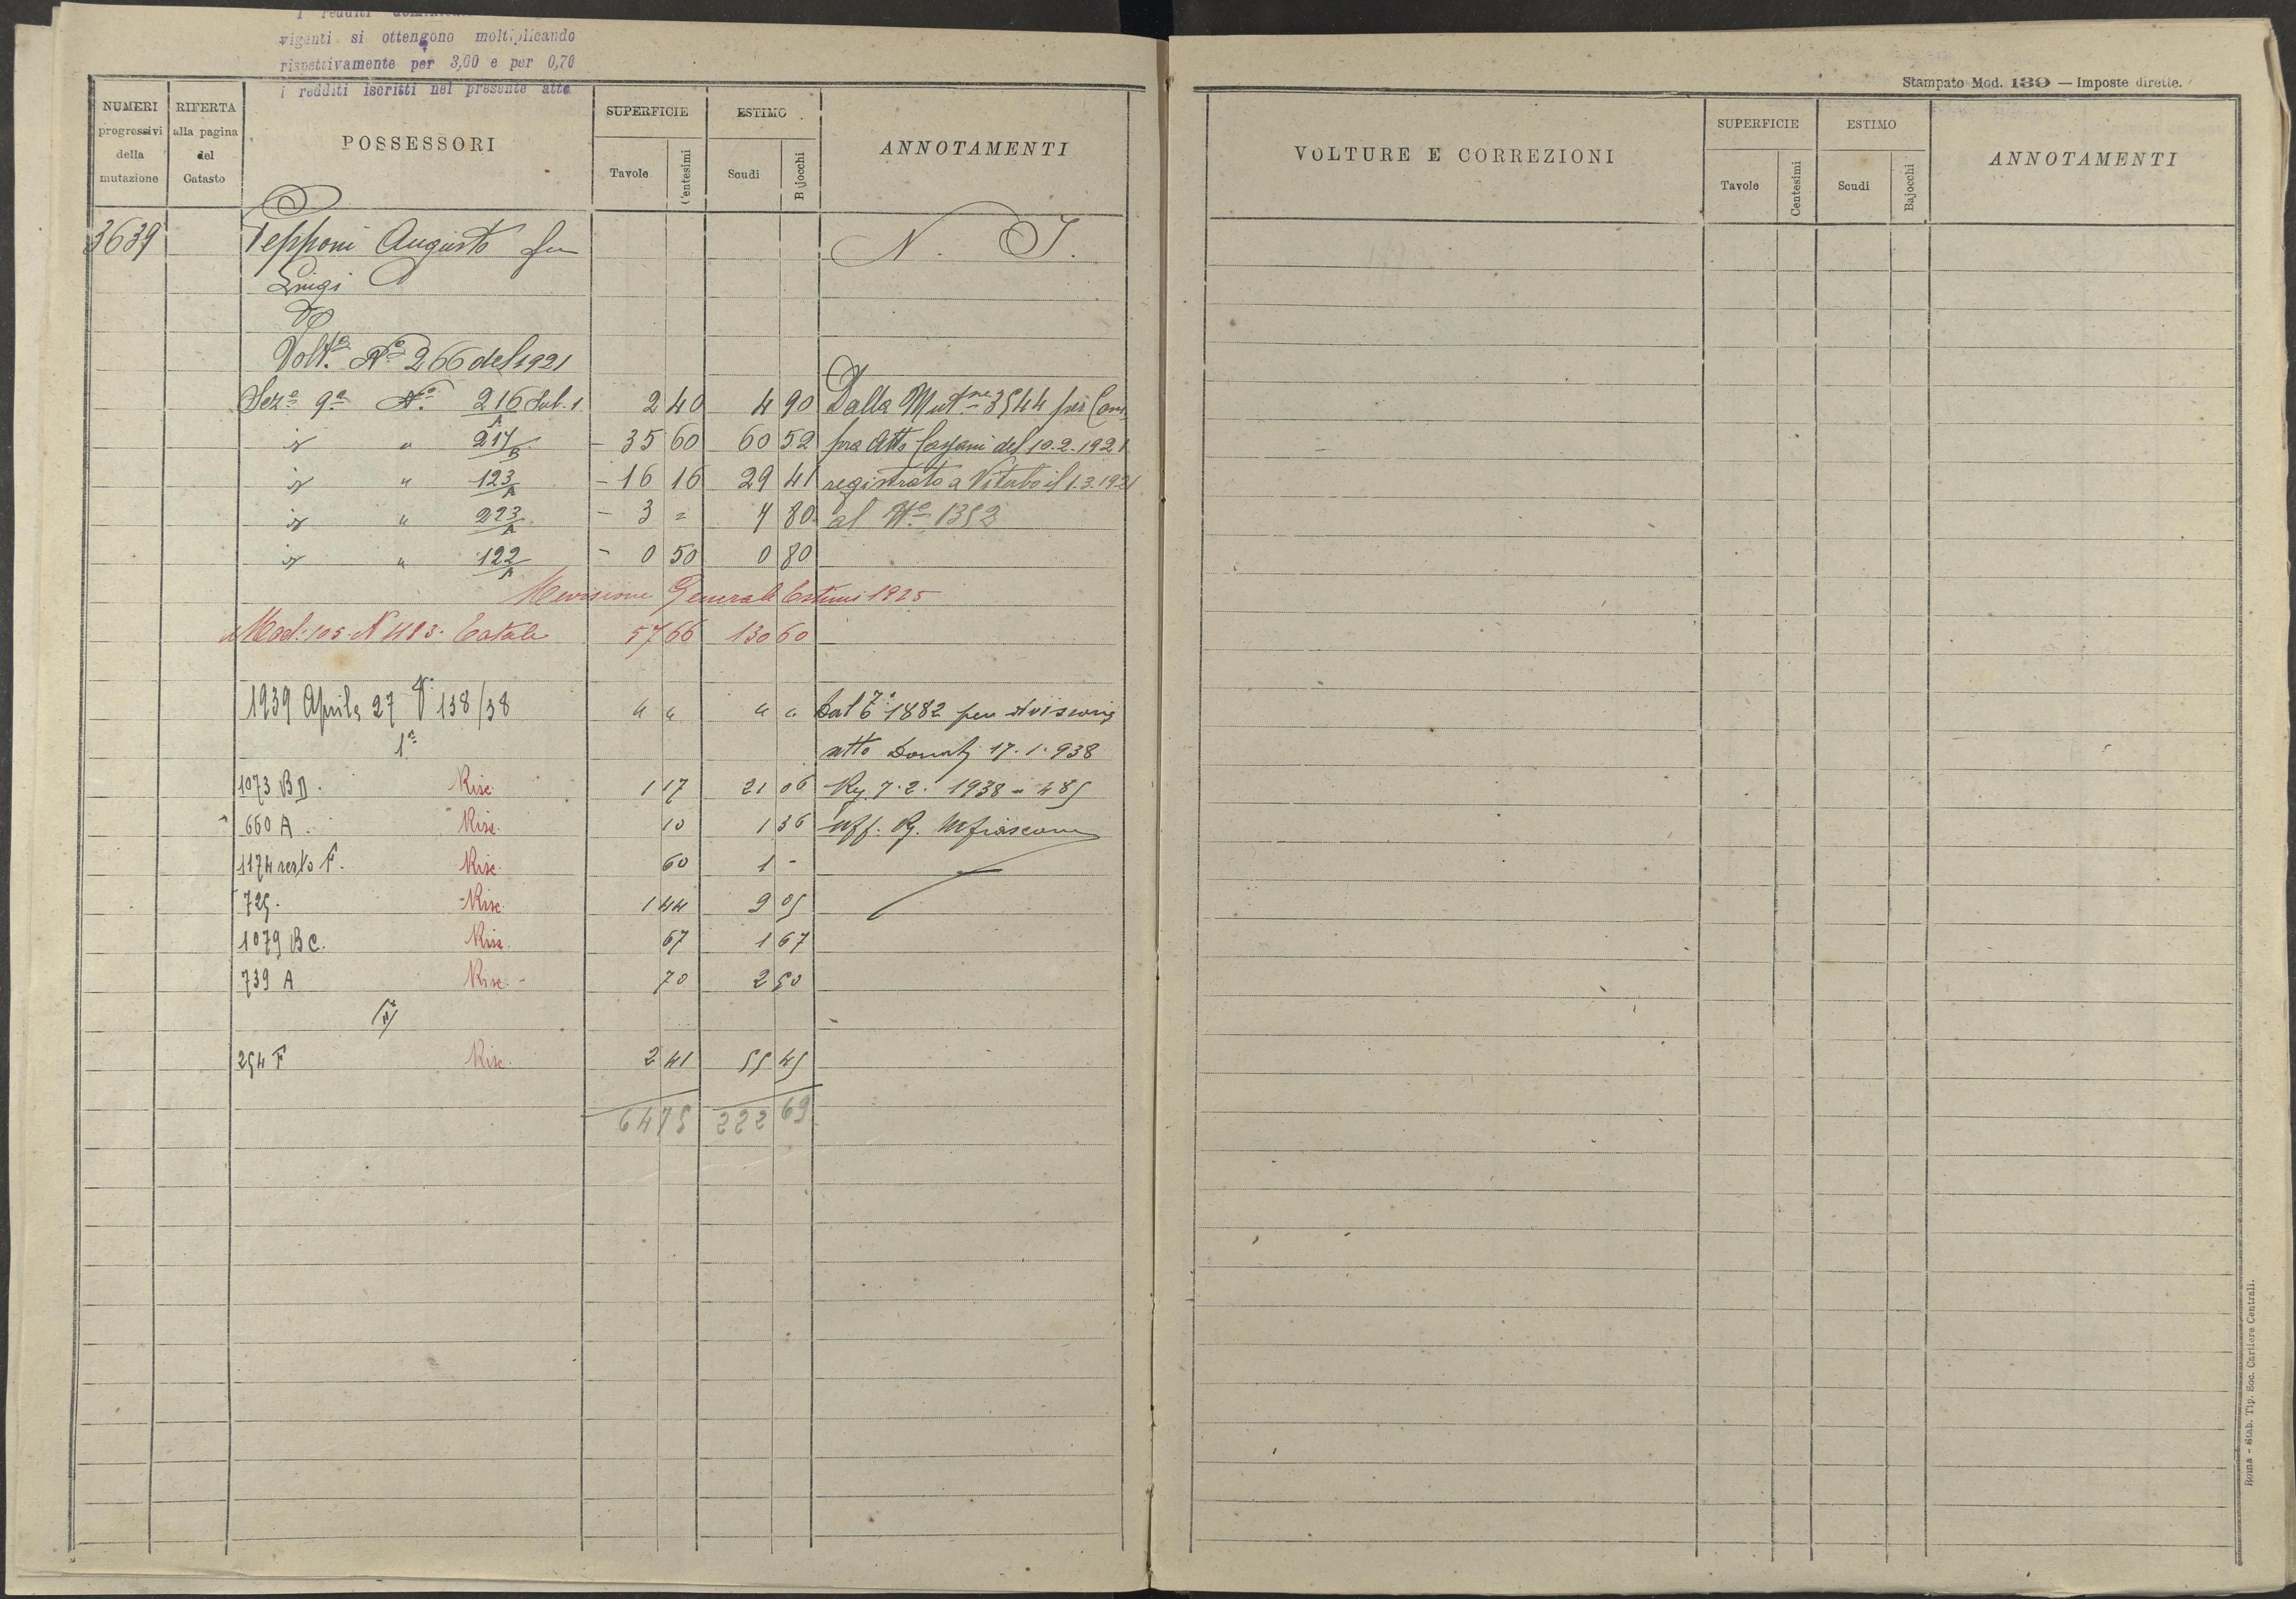 I redditi
vigenti si ottengono moltiplicando
rispettivamente per 3,00 e per 0,70
i redditi iscritti nel presente atto
NUMERI progressivi della mutazione
RIFERTA alla pagina del Catasto
POSSESSORI
SUPERFICIE
Tavole
Centesimi
ESTIMO
Scudi
Bajocchi
ANNOTAMENTI
3639 Pepponi Augusto fu N. I.
Luigi
Volt.a N.o 266 del 1921
Sez.e 9a N.o 216 Sub. 1 2 40 4 90 Dalla Mut.ne 3544 per Com
" 217/B - 35 60 60 52 pra Atto del 10.2.1921
" 123/A - 16 16 29 41 registrato a Viterbo il 1.3.1921
" 223/A - 3 = 4 80 al N.o 1352
" 122/A - 0 50 0 80
Revisione Generale Estimi 1925
Mod. 105. N 1183. Totale 57 66 130 60
1939 Aprile 27 V. 138/38 " " " " Dal 1882 per divisione
1a atto Donati 17.1.938
1073 BD. Risc. 1 17 21 06 Reg. 7.2.1938 - 485
660 A. Risc. 10 1 36 Uff. Rg. Mfiascone
1174 resto F. Risc. 60 1 -
725. Risc. 1 44 9 05
1079 BC. Risc. 67 1 67
739 A Risc. - 70 2 50
254 F Risc. 2 41 55 45
64 75 222 69
Stampato Mod. 139 — Imposte dirette.
VOLTURE E CORREZIONI
SUPERFICIE
Tavole
Centesimi
ESTIMO
Scudi
Bajocchi
ANNOTAMENTI
Roma - Stab. Tip. Soc. Cartiere Centrali.